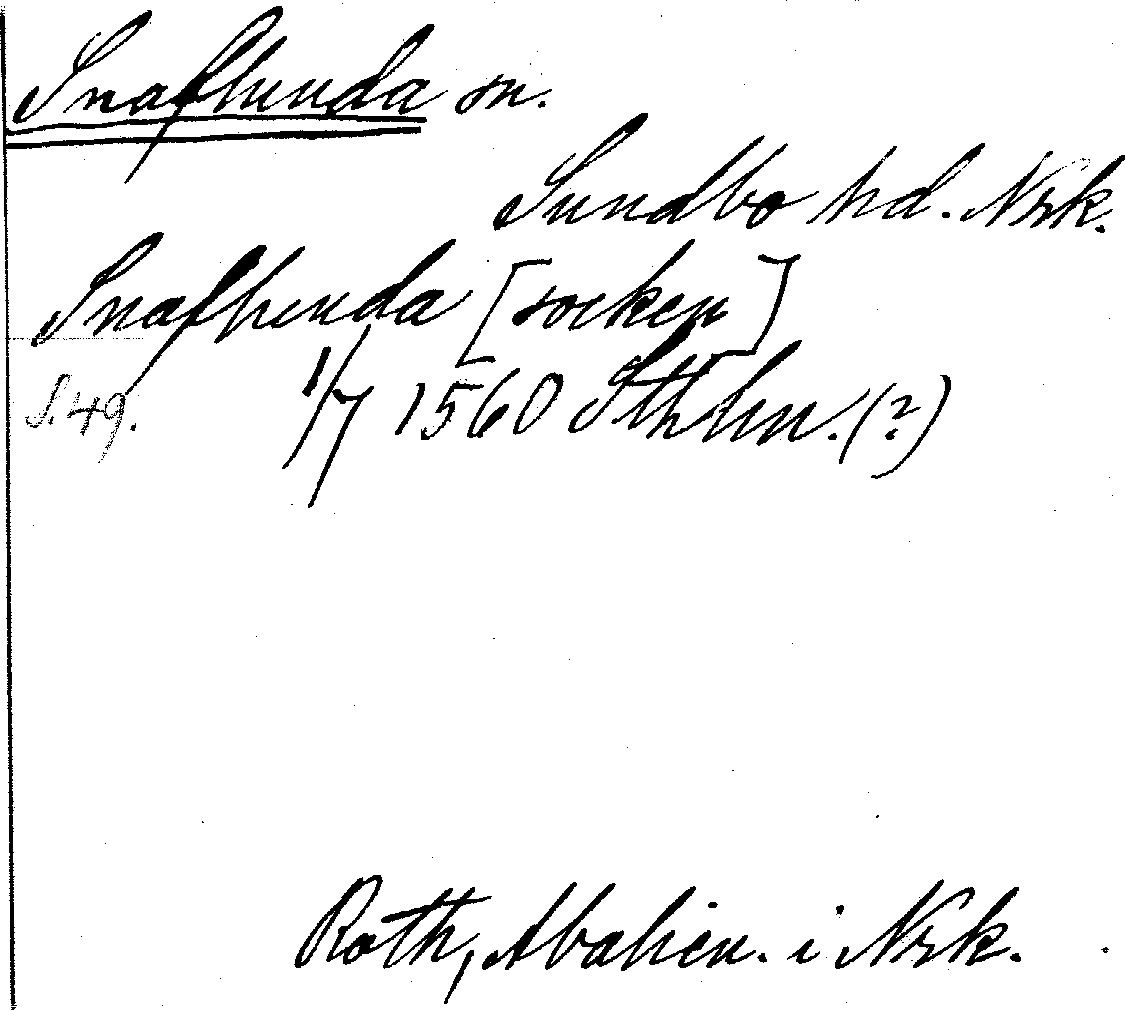 Snaflunda sn.
Sundbo hd. Nrk.
Snafhunda [socken]
S. 49. 1/7 1560 Sthlm. (?)
Roth, Abalien. i Nrk.